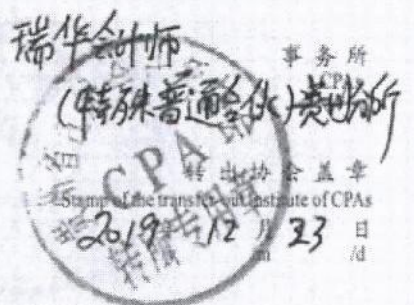 瑞华会计师
事务所
CPAs
(特殊普通合伙)
分所
CPA
转出协会盖章
Stamp of the transfer-out Institute of CPAs
2019年12月23日
/y /m /d
转所专用章